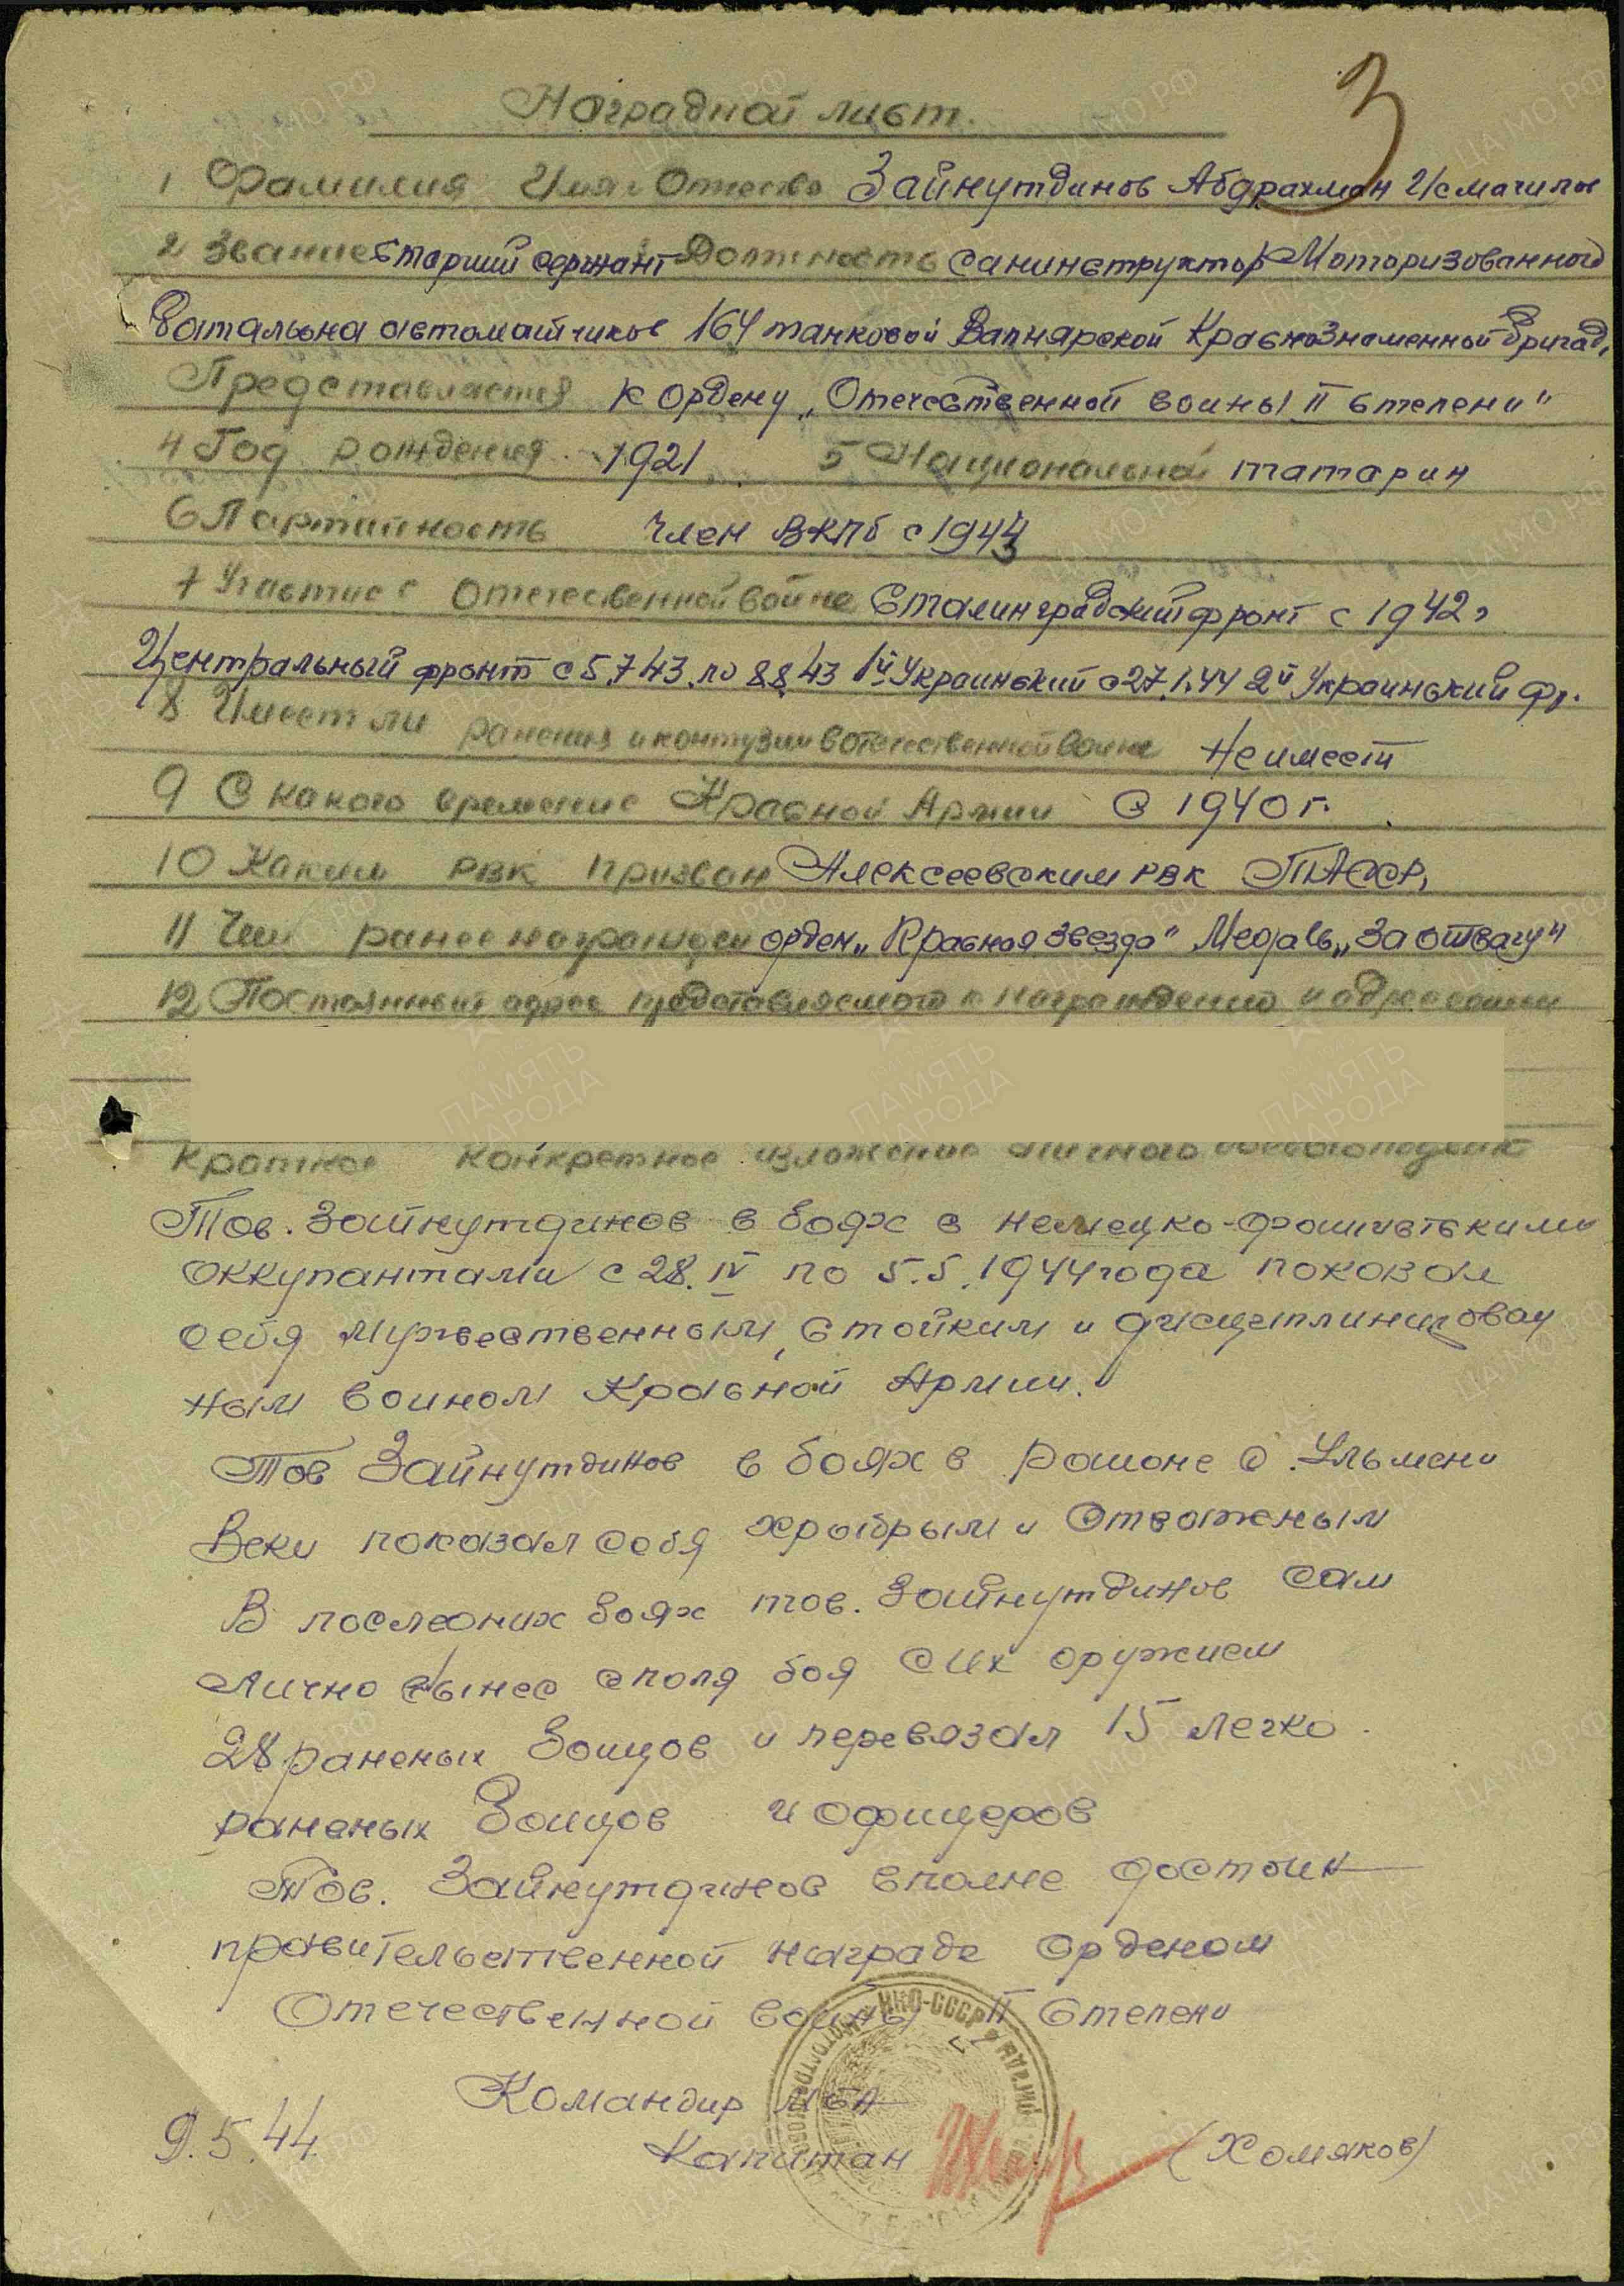 3
Наградной лист.
1 Фамилия Имя Отчество Зайнутдинов Абдрахман Исмагилов
2 Звание Старший сержант Должность санинструктор Моторизованного
батальона автоматчиков 164 танковой Вапнярской Краснознаменной бригад.
Представляется к ордену „Отечественной войны II степени"
4 Год рождения 1921 5 Национальной татарин
6 Партийность член ВКПб с 1943
7 Участие в Отечественной войне Сталинградский фронт с 1942г
Центральный фронт с 5.7.43 по 8.8.43 1й Украинский с 27.1.44 2й Украинский фр.
8 Имеет ли ранения и контузии в отечественной войне Не имеет
9 С какого времени в Красной Армии С 1940 г.
10 Каким РВК призван Алексеевским РВК ТАССР,
11 Чем ранее награжден орден „Красная звезда" Медаль „За отвагу"
12 Постоянный адрес представляемого к награждению и адрес семьи
Краткое конкретное изложение личного боевого подвига
Тов. Зайнутдинов в боях с немецко-фашистскими
оккупантами с 28. IV по 5.5.1944 года показал
себя мужественным, стойким и дисциплинирован
ным воином Красной Армии.
Тов Зайнутдинов в боях в районе с. Ульмени
Веки показал себя храбрым и отважным
В последних боях тов. Зайнутдинов сам
лично вынес с поля боя с их оружием
28 раненых бойцов и перевязал 15 легко
раненых бойцов и офицеров
Тов. Зайнутдинов вполне достоин
правительственной награде орденом
Отечественной войны II степени
НКО-СССР
Командир МБА
9.5.44 Капитан (Хомяков)